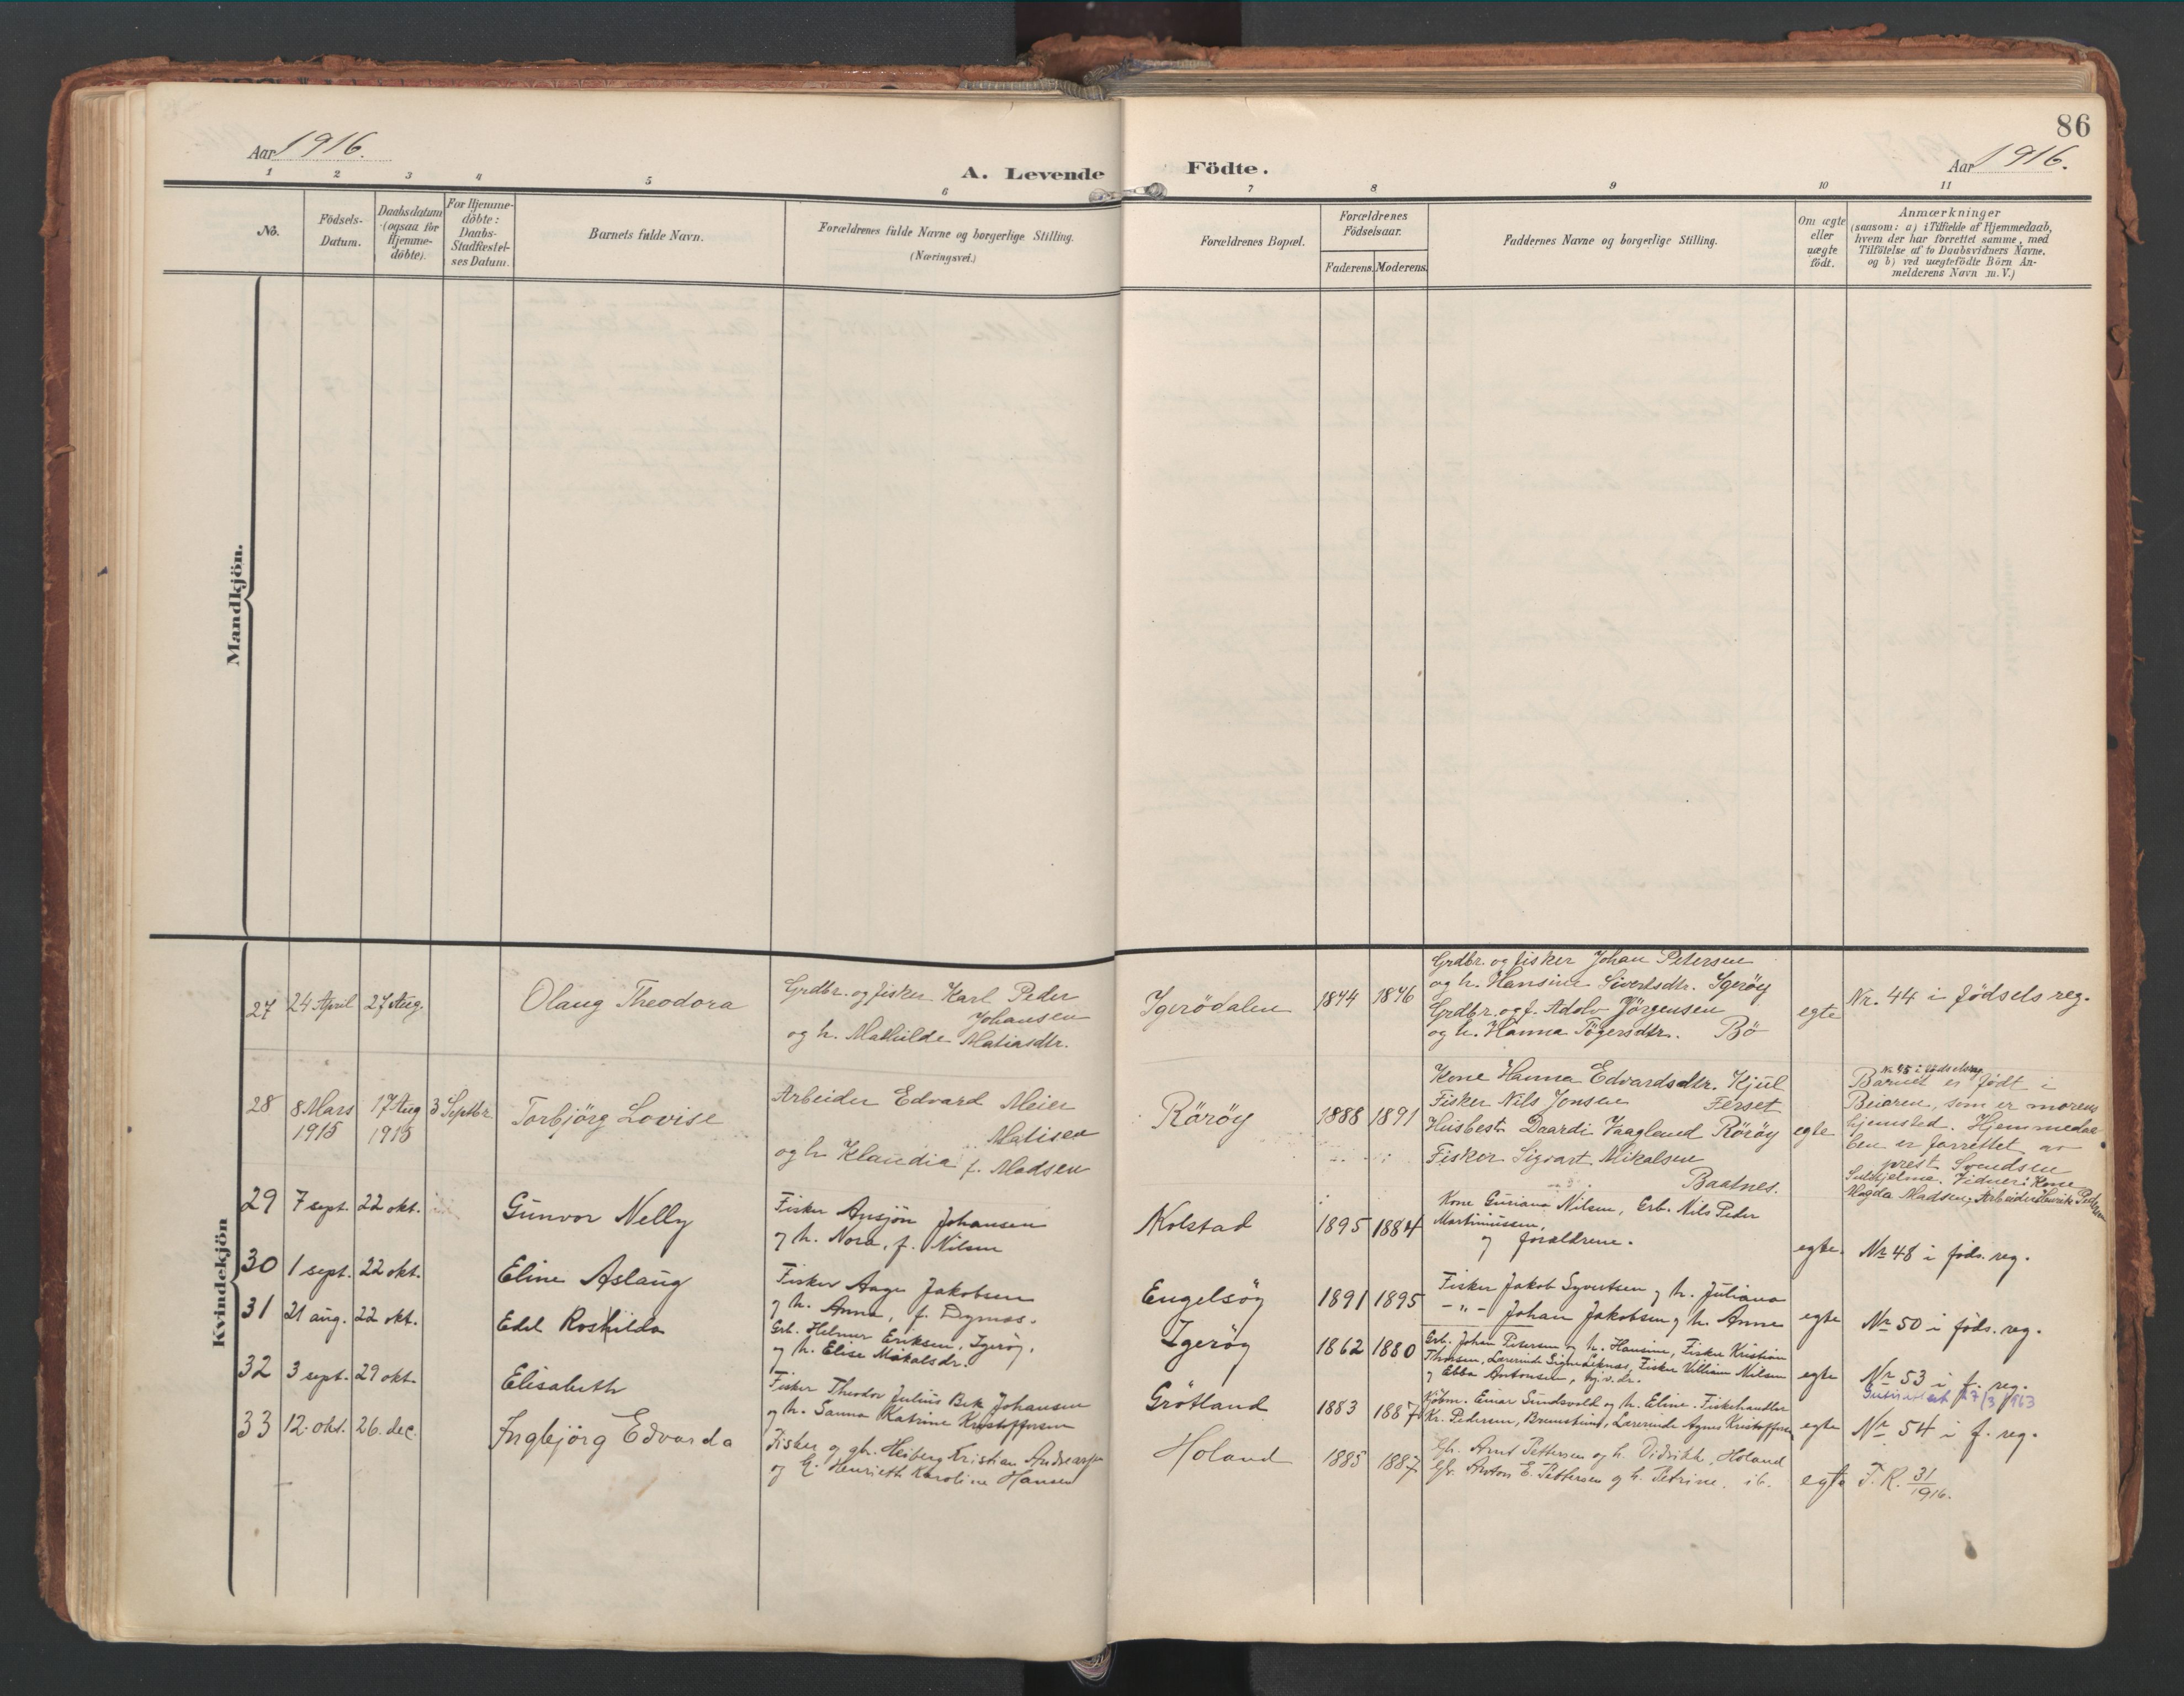 86
Aar 1916.
A. Levende Födte.
Aar 1916.
1 2 3 4 5 6 7 8 9 10 11
No.
Födsels-
Datum.
Daabsdatum
(ogsaa for
Hjemme-
döbte).
For Hjemme-
döbte:
Daabs-
Stadfæstel-
ses Datum.
Barnets fulde Navn.
Forældrenes fulde Navne og borgerlige Stilling.
(Næringsvei.)
Forældrenes Bopæl.
Forældrenes
Födselsaar.
Faderens. Moderens.
Faddernes Navne og borgerlige Stilling.
Om ægte
eller
uægte
födt.
Anmærkninger
(saasom: a) i Tilfælde af Hjemmedaab,
hvem der har forrettet samme, med
Tilföielse af to Daabsvidners Navne,
og b) ved uægtefödte Börn An-
melderens Navn m. V.)
Mandkjön.
Kvindekjön
27 24 April 27 Aug. Olaug Theodora
Grdbr. og fisker Karl Peder
Johansen
og h. Mathilde Matiasdtr.
Igerödalen 1844 1846
Grdbr. og fisker Johan Petersen
og h. Hansine Sivertsdtr. Igeröy
Grdbr. og f. Adolv Jörgensen
og h. Hanna Tögersdtr. Bö
egte
Nr. 44 i födsels reg.
28 8 Mars 17 Aug 3 Septbr. Torbjörg Lovise
1915 1915
Arbeider Edvard Meier
Matisen
og h Klaudia f. Madsen
Röröy 1888 1891
Kone Hanna Edvardsdtr. Kjul
Fisker Nils Jonsen Ferset
Husbest. Daardi Vaagland Röröy
Fisker Sigvart Mikalsen
Baatnes.
egte
Nr. 45 i födselsreg
Barnet er födt i
Beiaren, som er morens
hjemsted. Hjemmedaa-
ben er forrettet av
prest Svendsen
Sulitjelma. Vidner: Kone
Magda Madsen, Arbeider Henrik Pedersen
29 7 sept. 22 okt. Gunvor Nelly
Fisker Ansjön Johansen
og h. Nora, f. Nilsen
Kolstad 1895 1884
Kone Guriana Nilsen, Grb. Nils Peder
Martinussen,
og forældrene.
egte. Nr 48 i föds. reg.
30 1 sept. 22 okt. Eline Aslaug
Fisker Aage Jakobsen
og h. Anna, f. Dypnæs.
Engelsöy 1891 1895
Fisker Jakob Syvertsen og h. Juliana
- " - Johan Jakobsen og h. Anne
egte Nr 50 i föds. reg.
31 21 aug. 22 okt. Edel Roshilda
Grb. Helmer Eriksen, Igeröy,
og h. Elise Mikalsdr.
Igeröy 1862 1880
Grb. Johan Petersen og h. Hansine, Fisker Kristian
Thorsen, Lærerinde Signe Leknæs, Fisker Villiam Nilsen
og Ebba Antonsen, tj.v.dr.
egte Nr 53 i f. reg.
32 3 sept. 29 okt. Elisabeth
Fisker Theodor Julius Bek Johansen
og h. Sanna Katrine Kristoffersen
Grötland 1883 1887
Kjöbm. Einar Sundsvold og h. Eline. Fiskehandler
Kr. Pedersen, Brunstind, Lærerinde Agnes Kristoffersen
egte Nr 54 i f. reg.
33 12. okt. 26. dec. Ingbjörg Edvarda
Fisker og gb. Heiberg Kristian Andreassen
og h. Henrieth Karoline Hansen
Holand 1885 1887
Gb. Arnt Pettersen og h. Didrikke, Holand
Gb. Anton E. Pettersen og h. Petrine. ib.
egte F. R. 31/1916.